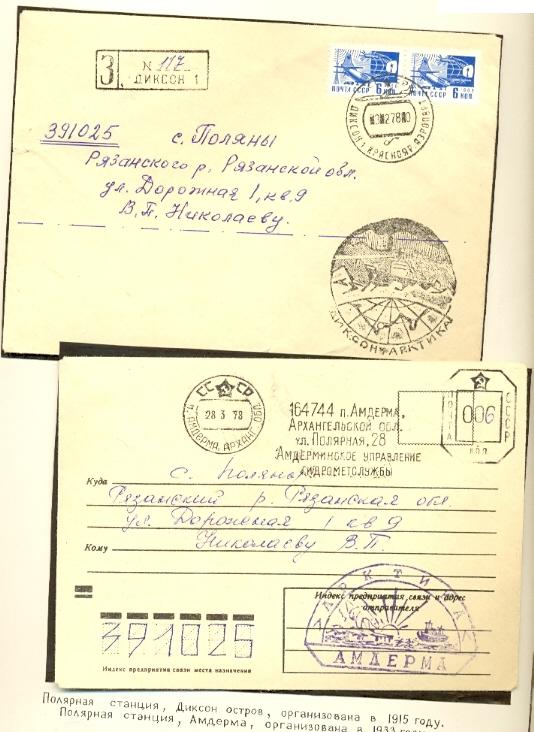 З N 117
ДИКСОН 1
ПОЧТА СССР 6 КОП
ПОЧТА СССР 6 КОП
391025
с. Поляны
Рязанского р, Рязанской обл.
ул. Дорожная 1, кв. 9
В. П. Николаеву.
ДИКСОН 1 КРАСНОЯР АЭРОПОРТ
ДИКСОН АРКТИКА
СССР
28 3 78
п. АМДЕРМА, АРХАНГ. ОБЛ.
164744 п. АМДЕРМА,
АРХАНГЕЛЬСКОЙ ОБЛ.
ул. ПОЛЯРНАЯ, 28
АМДЕРМИНСКОЕ УПРАВЛЕНИЕ
ГИДРОМЕТСЛУЖБЫ
ПОЧТА 006 СССР
КОП
Куда с. Поляны
Рязанский р. Рязанская обл.
ул. Дорожная 1 кв 9
Кому Николаеву В. П.
Индекс предприятия связи и адрес
отправителя
АРКТИКА
АМДЕРМА
391025
Индекс предприятия связи места назначения
Полярная станция, Диксон остров, организована в 1915 году.
Полярная станция, Амдерма, организована в 1933